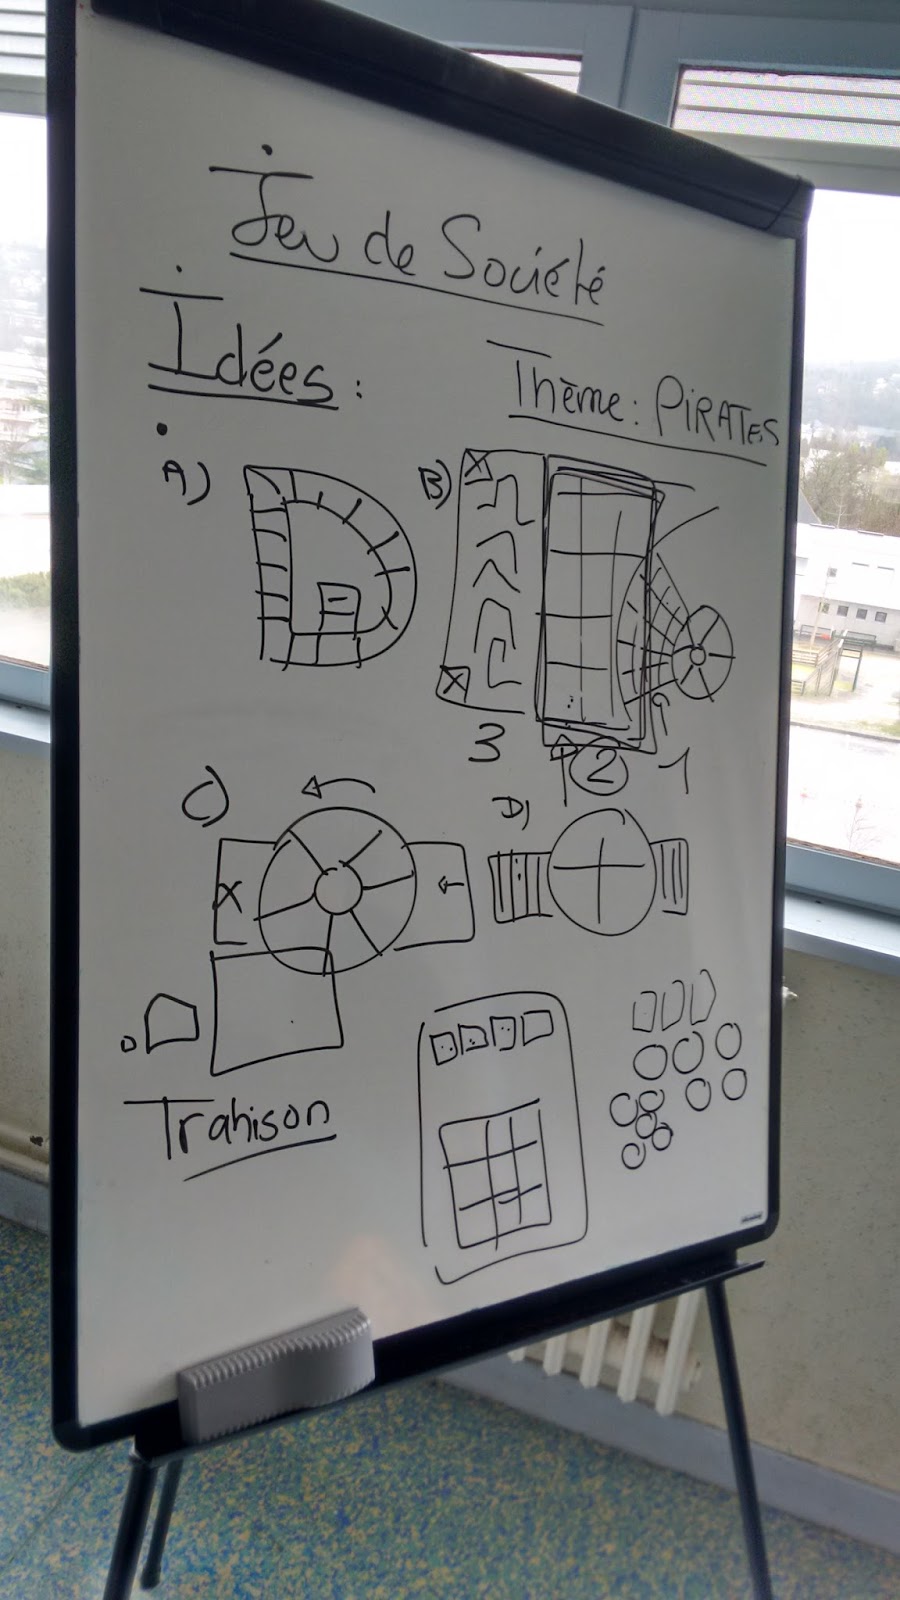 Jeu de Société
Idées :
Thème : PiRATEs
A)
B)
3
2
1
C)
D)
Trahison